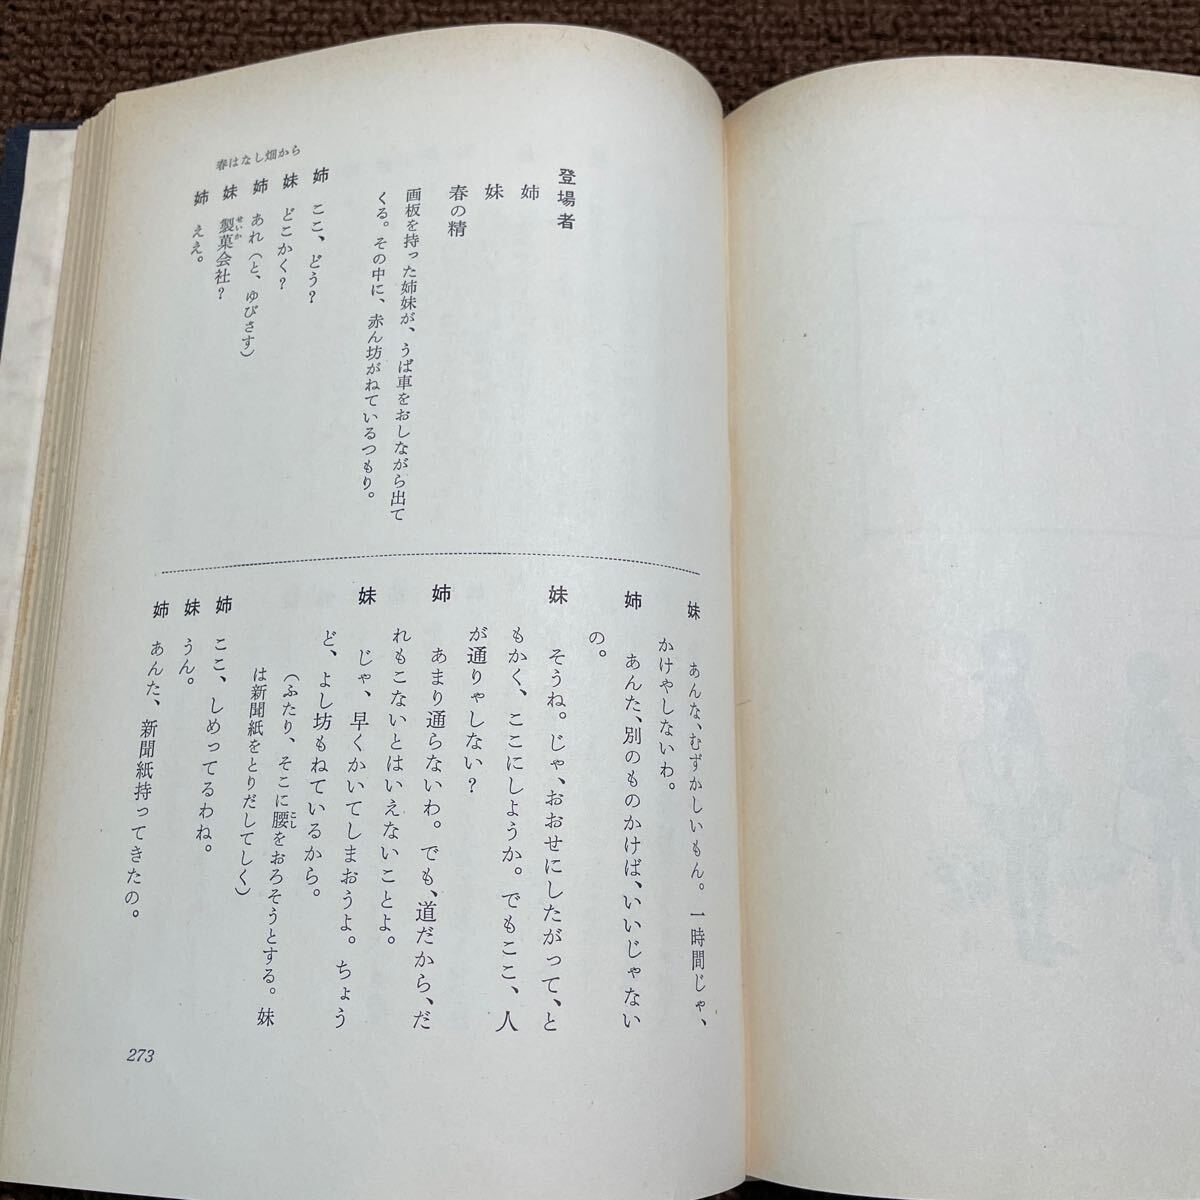 登場者
姉
妹
春の精
画板を持った姉妹が、うば車をおしながら出て
くる。その中に、赤ん坊がねているつもり。
姉　ここ、どう？
妹　どこかく？
姉　あれ（と、ゆびさす）
妹　製菓会社？
せいか
姉　ええ。
春はなし畑から
妹　あんな、むずかしいもん。一時間じゃ、
かけやしないわ。
姉　あんた、別のものかけば、いいじゃない
の。
妹　そうね。じゃ、おおせにしたがって、と
もかく、ここにしようか。でもここ、人
が通りゃしない？
姉　あまり通らないわ。でも、道だから、だ
れもこないとはいえないことよ。
妹　じゃ、早くかいてしまおうよ。ちょう
ど、よし坊もねているから。
（ふたり、そこに腰をおろそうとする。妹
こし
は新聞紙をとりだしてしく）
姉　ここ、しめってるわね。
妹　うん。
姉　あんた、新聞紙持ってきたの。
273